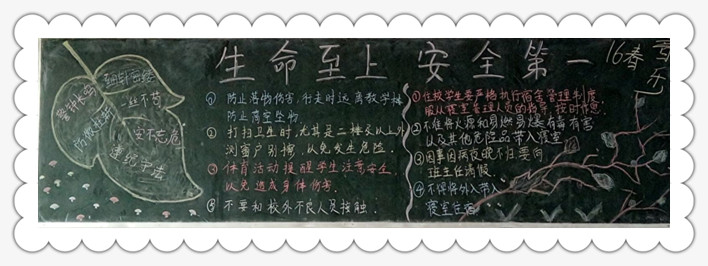 生命至上 安全第一
16春
警钟长鸣
防微杜渐
一丝不苟
安不忘危
遵纪守法
① 防止落物伤害,行走时远离教学楼
防止高空坠物.
② 打扫卫生时,尤其是二楼及以上外
测窗户别擦,以免发生危险.
③ 体育活动提醒学生注意安全,
以免造成身体伤害.
④ 不要和校外不良人员接触.
① 住校学生要严格执行宿舍管理制度
服从寝室管理人员的指导,按时作息.
② 不准带火源和易燃易爆有毒有害
以及其他危险品带入寝室
③ 因事因病夜晚不归要向
班主任请假.
④ 不得将外人带入
寝室住宿